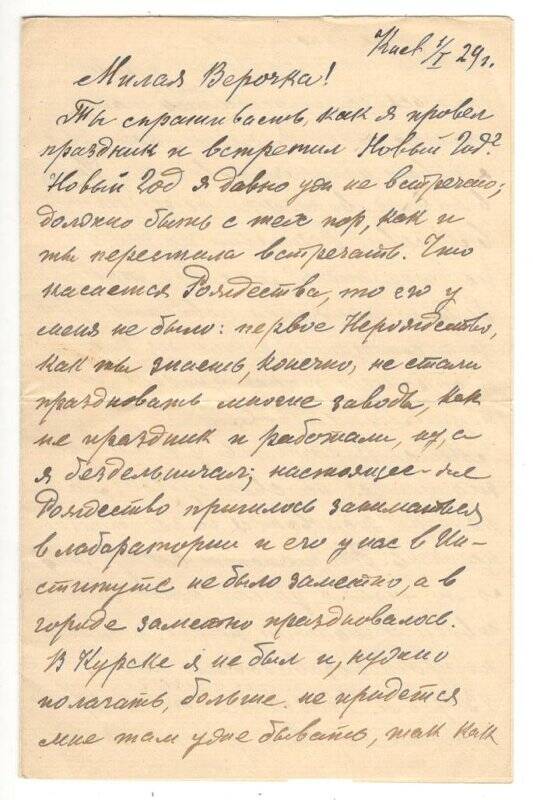 Киев 1/I 29г.
Милая Верочка!
Ты спрашиваешь, как я провел
праздник и встретил Новый Год?
Новый Год я давно уж не встречаю;
должно быть с тех пор, как и
ты перестала встречать. Что
касается Рождества, то его у
меня не было: первое Нерождество,
как ты знаешь, конечно, не стали
праздновать многие заводы, как
не праздник и работали, ну, а
я бездельничал; настоящее-же
Рождество пришлось заниматься
в лаборатории и его у нас в Ин-
ституте не было заметно, а в
городе заметно праздновалось.
В Курске я не был и, нужно
полагать, больше не придется
мне там уже бывать, так как